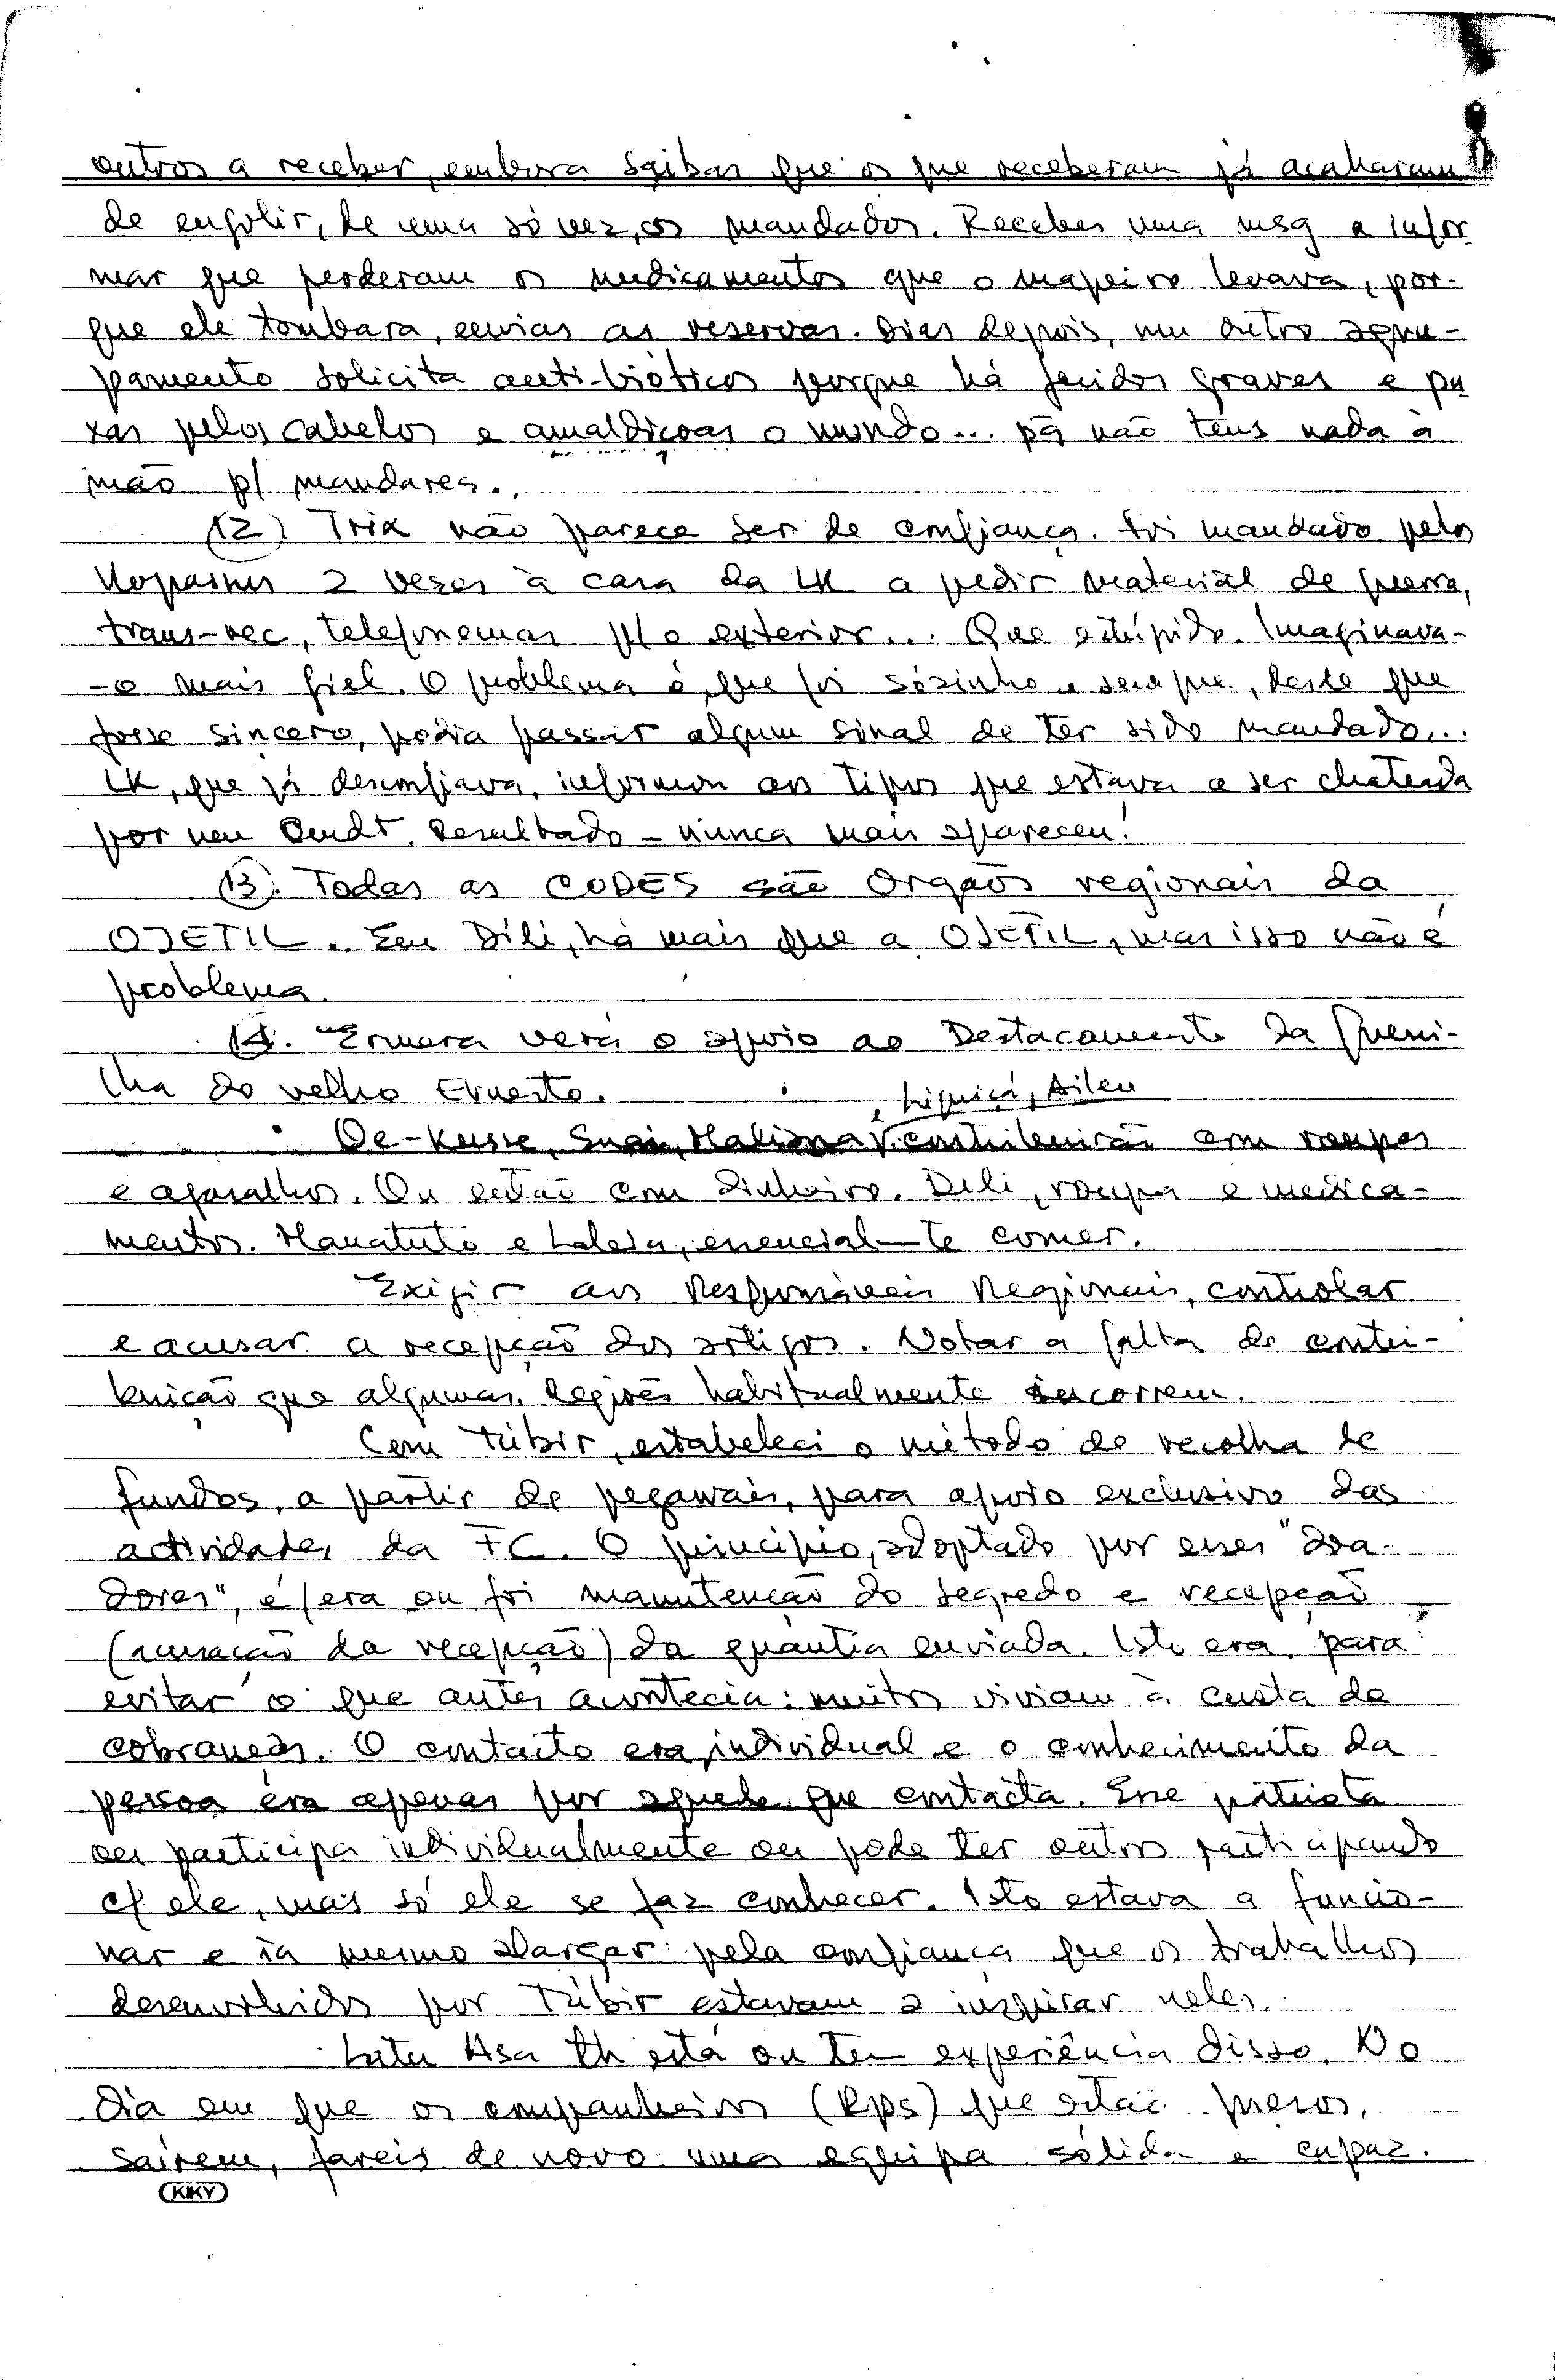 outros a receber, embora saibas que os que receberam já acabaram
de engolir, de uma só vez, os mandados. Recebes uma msg a infor
mar que perderam os medicamentos que o majeiro levava, por-
que ele tombara, envias as reservas. Dias depois, um outro agru-
pamento solicita anti-bióticos porque há feridos graves e pu
xas pelos cabelos e amaldiçoas o mundo... pq não tens nada à
mão p/ mandares.
(12) Trix não parece ser de confiança. Foi mandado pelos
2 vezes à casa da LK a pedir material de guerra,
trans-rec, telefonemas p/ o exterior... Que estúpido. Imaginava-
-o mais fiel. O problema é que foi sózinho e sempre, desde que
fosse sincero, podia passar algum sinal de ter sido mandado...
LK, que já desconfiava, informou aos tipos que estava a ser chateada
por um Resultado - nunca mais apareceu!
(13). Todas as CODES são Orgãos regionais da
OJETIL. Em Dili, há mais que a OJETIL, mas isso não é
problema.
14. Ermera verá o apoio ao Destacamento da Guerri-
lha do velho Ernesto.
, Liquiçá, Aileu
Oe-Kusse, Suai, Maliana contribuirão com roupas
e agasalhos. Ou então com dinheiro. Dili, roupa e medica-
mentos. Manatuto e Laleia, essencial-te comer.
Exigir aos Responsáveis Regionais, controlar
e acusar a recepção dos artigos. Notar a falta de contri-
buição que algumas Regiões habitualmente incorrem.
Com Túbir, estabeleci o método de recolha de
fundos, a partir de pegawais, para apoio exclusivo das
actividades da FC. O princípio, adoptado por esses "doa-
dores", é/era ou foi manutenção do segredo e recepção
(acusação da recepção) da quantia enviada. Isto era para
evitar o que antes acontecia: muitos viviam à custa de
cobranças. O contacto era individual e o conhecimento da
pessoa era apenas por aquele que contacta. Esse patriota
ou participa individualmente ou pode ter outros participando
c/ ele, mas só ele se faz conhecer. Isto estava a funcio-
nar e ia mesmo alargar pela confiança que os trabalhos
desenvolvidos por Túbir estavam a inspirar neles.
Asa está ou tem experiência disso. No
dia em que os companheiros (Rps) que estão presos,
saírem, fareis de novo uma equipa sólida e capaz.
KIKY